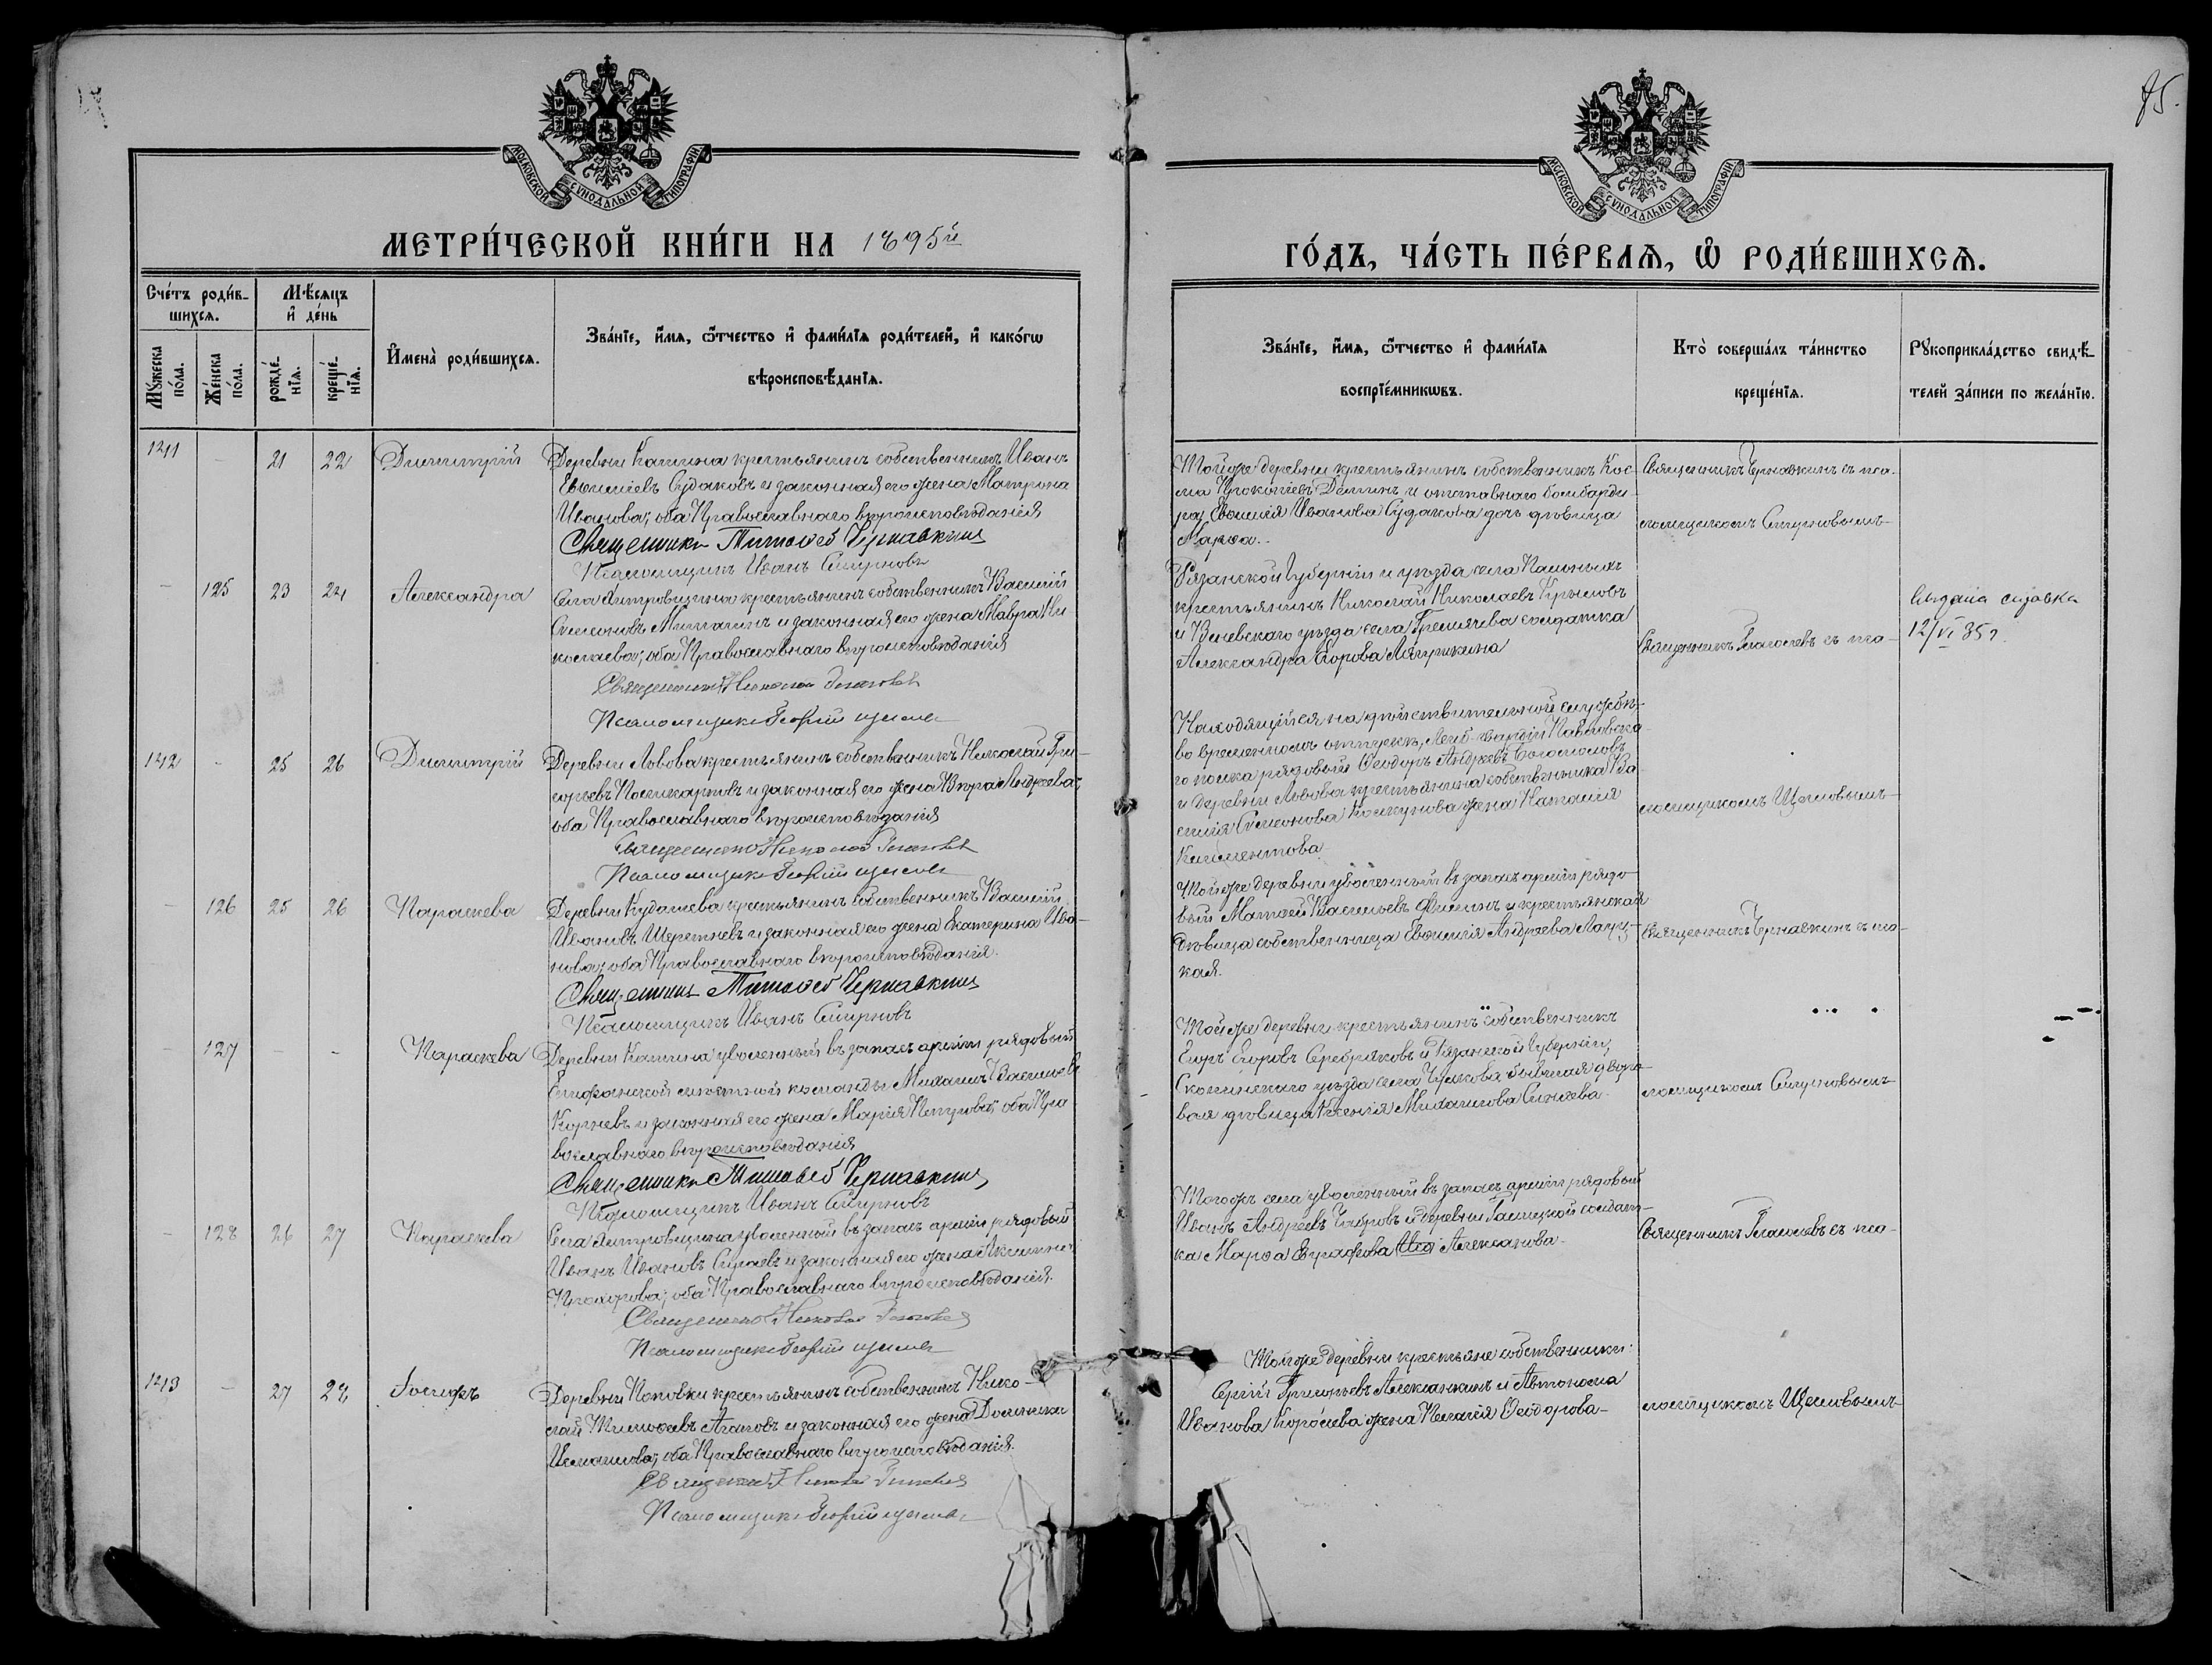 75.
МОСКОВСКОЙ СѴНОДАЛЬНОЙ ТИПОГРАФІИ
МЕТРИ́ЧЕСКОЙ КНИ́ГИ НА 1895й
Сче́тъ роди́в-
шихсѧ.
Мѣ́сяцъ
и҆ де́нь
Мꙋ́жеска
по́ла.
Же́нска
по́ла.
рожде́-
нїѧ.
креще́-
нїѧ.
И҆мена̀ роди́вшихсѧ.
Зва́нїе, и҆́мѧ, ѻ҆́тчество и҆ фами́лїѧ роди́телей, и҆ како́гѡ
вѣроисповѣ́данїѧ.
141 - 21 22 Димитрій
Деревни Кашина крестьянинъ собственникъ Иванъ
Евѳиміевъ Судаковъ и законная его жена Матрона
Иванова; оба Православнаго вѣроисповѣданія
Священникъ Тимоѳей Чернавкинъ
Псаломщикъ Иванъ Смирновъ
- 125 23 24 Александра
Села Дитровщина крестьянинъ собственникъ Василій
Симеоновъ и законная его жена Мавра Ни
колаева; оба Православнаго вѣроисповѣданія
Священникъ Николай Глаголевъ
Псаломщикъ Георгій Щегловъ
142 - 25 26 Димитрій
Деревни Львова крестьянинъ собственникъ Николай Гри-
горьевъ Поликарповъ и законная его жена Вѣра Андреева;
оба Православнаго вѣроисповѣданія
Священникъ Николай Глаголевъ
Псаломщикъ Георгій Щегловъ
- 126 25 26 Параскева
Деревни Кудашева крестьянинъ собственникъ Василій
Ивановъ Шереметевъ и законная его жена Екатерина Ива-
нова; оба Православнаго вѣроисповѣданія.
Священникъ Тимоѳей Чернавкинъ
Псаломщикъ Иванъ Смирновъ
- 127 - - Параскева
Деревни Кашина уволенный въ запасъ арміи рядовый
Епифанской мѣстной команды Михаилъ Васильевъ
Корневъ и законная его жена Марія Петрова; оба Пра
вославнаго вѣроисповѣданія
Священникъ Тимоѳей Чернавкинъ
Псаломщикъ Иванъ Смирновъ
- 128 26 27 Параскева
Села Дитровщина уволенный въ запасъ арміи рядовый
Иванъ Ивановъ и законная его жена
Прохорова; оба Православнаго вѣроисповѣданія.
Священникъ Николай Глаголевъ
Псаломщикъ Георгій Щегловъ
143 - 27 28 Іосифъ
Деревни Поповки крестьянинъ собственникъ Нико-
лай Тимоѳеевъ Агаповъ и законная его жена Домникія
оба Православнаго вѣроисповѣданія.
Священникъ Николай Глаголевъ
Псаломщикъ Георгій Щегловъ
МОСКОВСКОЙ СѴНОДАЛЬНОЙ ТИПОГРАФІИ
ГО́ДЪ, ЧА́СТЬ ПЕ́РВАѦ, Ѡ҆ РОДИ́ВШИХСѦ.
Зва́нїе, и҆́мѧ, ѻ҆́тчество и҆ фами́лїѧ
воспрїе́мникѡвъ.
Кто̀ соверша́лъ та́инство
креще́нїѧ.
Рꙋкоприкла́дство свидѣ́-
телей за́писи по жела́нїю.
Тойже деревни крестьянинъ собственникъ Кос-
ма Прокопіевъ Деминъ и отставнаго бомбарди-
ра Евѳимія Иванова Судакова дочь дѣвица
Марѳа.
Священникъ Чернавкинъ съ пса-
ломщикомъ Смирновымъ
Рязанской губерніи и уѣзда села
крестьянинъ Николай Николаевъ Крыловъ
и Веневскаго уѣзда села Гремячева солдатка
Александра Егорова Лягушкина
Священникъ Глаголевъ съ пса-
Выдана справка
12/VI 35 г.
Находящійся на дѣйствительной службѣ,
во временномъ отпуску, Лейб-гвардіи Павловска
го полка рядовый Ѳеодоръ Андреевъ Богомоловъ
и деревни Львова крестьянина собственника Ва
силія Симеонова жена Наталія
Климентова
ломщикомъ Щегловымъ
Тойже деревни уволенный въ запасъ арміи рядо
вый Матѳей Васильевъ Филинъ и крестьянская
дѣвица собственница Евѳимія Андреева
кая.
Священникъ Чернавкинъ съ пса-
Тойже деревни крестьянинъ собственникъ
Егоръ Егоровъ Серебряковъ и Рязанской губерніи,
Скопинскаго уѣзда села Чулкова бывшая дворо
вая дѣвица Ксенія Михаилова Синяева
ломщикомъ Смирновымъ
Тогожъ села уволенный въ запасъ арміи рядовый
Иванъ Андреевъ Бобровъ и деревни солдат-
ка Марѳа Евграфова Алексанова
Священникъ Глаголевъ съ пса-
Тойже деревни крестьяне собственники:
Сергій Григорьевъ Алексанкинъ и Автонома
Иванова Королева жена Пелагія Ѳеодорова
ломщикомъ Щегловымъ